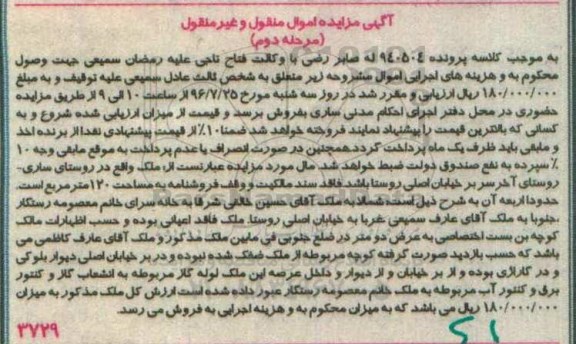 آگهی مزایده اموال منقول و غیر منقول
(مرحله دوم)
به موجب کلاسه پرونده ۹۴۰۵۰۴ له صابر رضی با وکالت فتاح تاجی علیه رمضان سمیعی جهت وصول
محکوم به و هزینه های اجرایی اموال مشروحه زیر متعلق به شخص ثالث عادل سمیعی علیه توقیف و به مبلغ
۱۸۰/۰۰۰/۰۰۰ ریال ارزیابی و مقرر شد در روز سه شنبه مورخ ۹۶/۷/۲۵ از ساعت ۱۰ الی ۹ از طریق مزایده
حضوری در محل دفتر اجرای احکام مدنی ساری بفروش برسد و قیمت از میزان ارزیابی شده شروع و به
کسانی که بالاترین قیمت را پیشنهاد نمایند فروخته خواهد شد ضمنا ۱۰٪ از قیمت پیشنهادی نقدا از برنده اخذ
و مابقی باید ظرف یک ماه پرداخت گردد همچنین در صورت انصراف یا عدم پرداخت به موقع مابقی وجه ۱۰
٪ سپرده به نفع صندوق دولت ضبط خواهد شد. مال مورد مزایده عبارتست از: ملک واقع در روستای ساری-
روستای آخر سر بر خیابان اصلی روستا باشد فاقد سند مالکیت و وقف فروشنامه به مساحت ۱۲۰ متر مربع است.
حدود اربعه آن به شرح ذیل است: شمالا به ملک آقای حسین خالقی شرقا به خانه سرای خانم معصومه رستگار
،جنوبا به ملک آقای عارف سمیعی غربا به خیابان اصلی روستا. ملک فاقد اعیانی بوده و حسب اظهارات مالک
کوچه بن بست اختصاصی به عرض دو متر در ضلع جنوبی فی مابین ملک مذکور و ملک آقای عارف کاظمی می
باشد که حسب بازدید صورت گرفته کوچه مربوطه از ملک منفک شده نبوده و در بر خیابان اصلی دیوار بلوکی
و در گاراژی بوده و از بر خیابان و از دیوار و داخل عرصه این ملک لوله گاز مربوطه به انشعاب گاز و کنتور
برق و کنتور آب مربوطه به ملک خانم معصومه رستگار عبور داده شده است ارزش کل ملک مذکور به میزان
۱۸۰/۰۰۰/۰۰۰ ریال می باشد که به میزان محکوم به و هزینه اجرایی به فروش می رسد.
۳۷۲۹